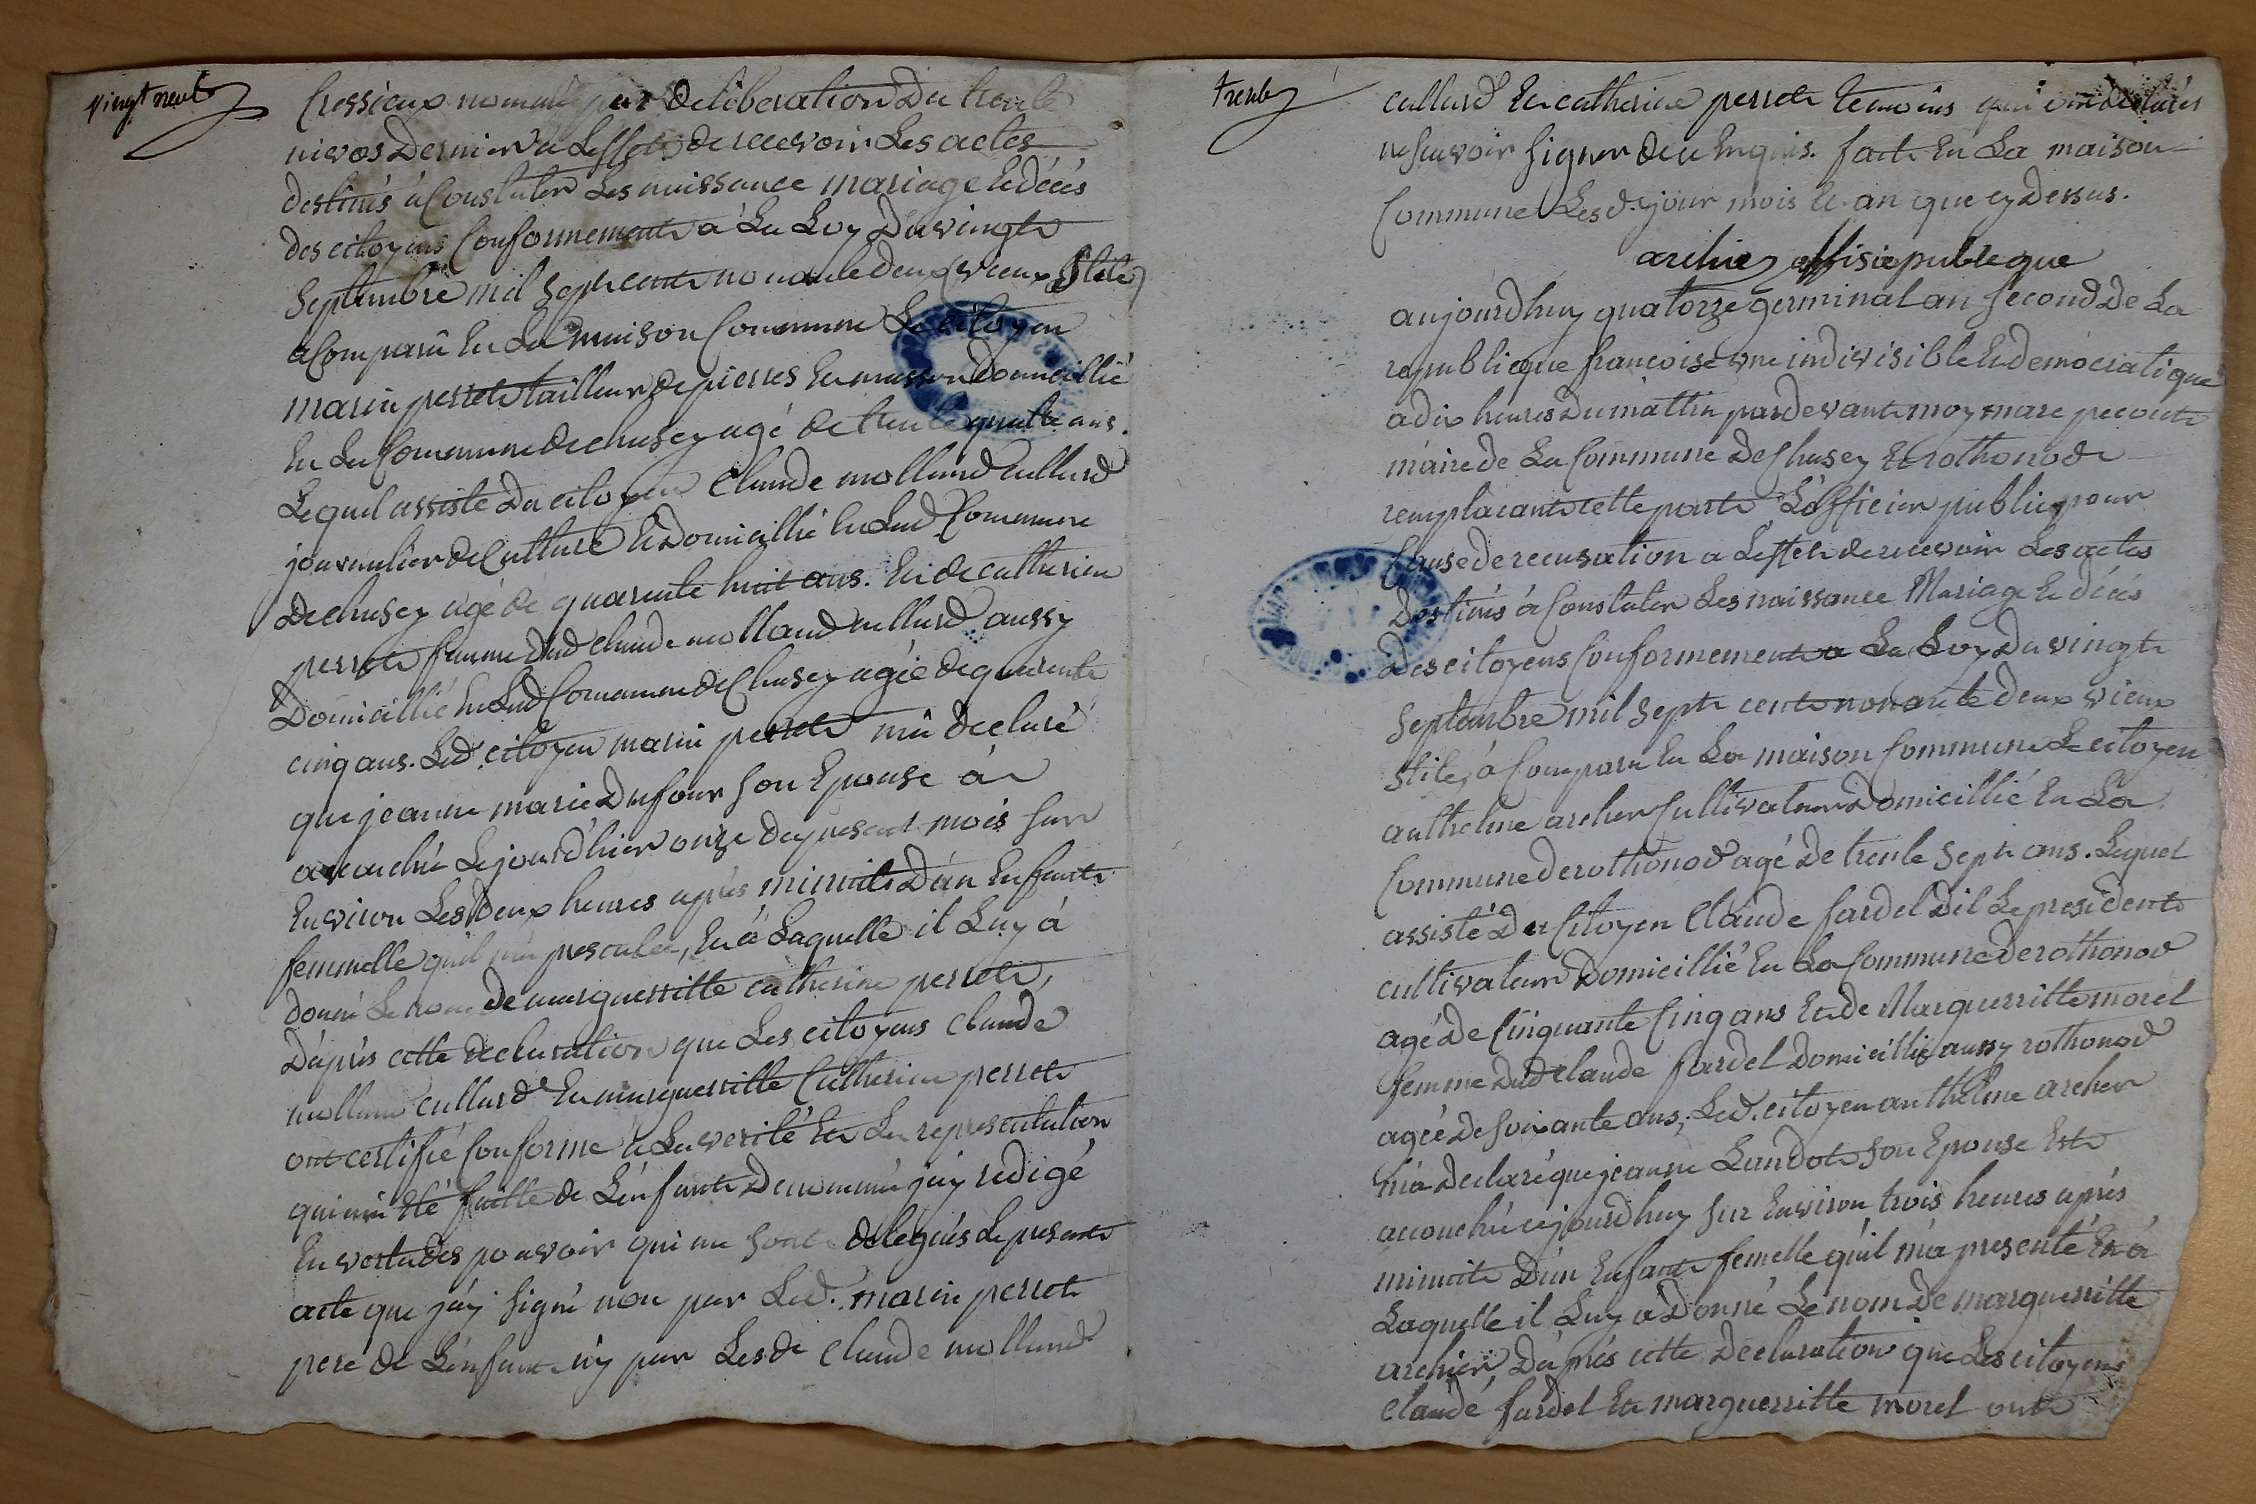 vingt neuf
Cressieux nommé par deliberation du trente
nivos dernier a Leffet de recevoir Les actes
destinés a Constater Les naissance mariage et décés
des citoyens Conformement a La Loy du vingt
septembre mil sept cent nonante deux (vieux stile)
a Comparû En La maison Commune Le citoyen
marin perret tailleur de pierres et masson domicillié
En La Commune de chusey agé de trente quatre ans.
Lequel assisté du citoyen Claude molland cullard
journalier de Culture et Domicillié En Lad Commune
de chusey agé de quarante huit ans. Et de catherine
perret femme dud Claude molland cullard aussy
Domicillié En Lad Commune de Chusey agéé de quarante
cinq ans. Led. citoyen marin perret mà declaré
que jeanne marie Dufour son Epouse à
accouchée Le jourd'hier onze du present mois sur
Environ Les deux heures aprés minuit d'un Enfant
femmelle quil m'a presentée, Et á Laquelle il Luy à
donné Le nom de marguerritte catherine perret,
D'aprés cette declaration que Les citoyens Claude
molland cullard Et marguerritte Catherine perret
ont certifié Conforme a La verité Et La representation
qui m'a été faitte de L'énfant denommé j'ay redigé
En vertu des pouvoir qui me sont délégués Le present
acte que j'ay signé non par Led. marin perret
pere de L'énfant n'y par Lesd Claude molland
trente
cullard Et catherine perret temoins qui ont declarés
ne scavoir signer de ce Enquis. fait En La maison
Commune Lesd. jour mois et an que cy dessus.
archer offisie publeque
aujourdhuy quatorze germinal an second de La
republicque francoise une indivisible Et democratique
a dix heures du mattin pardevant moy marc pecout
maire de La Commune de Chusey Et rothonod
remplacant cette parte L'officier public pour
Cause de recusation a Leffet de recevoir Les actes
Destinés á Constater Les naissance Mariage Et décés
des citoyens Conformement a La Loy du vingt
septembre mil sept cent nonante deux vieux
stile, à Comparu En La maison Commune Le citoyen
anthelme archer Cultivateur Domicillié En La
Commune de rothonod agé de trente sept ans. Lequel
assisté du Citoyen Claude fardel dit Le president
cultivateur Domicillié En La Commune de rothonod
agé de Cinquante Cinq ans Et de Marguerritte morel
femme dud Claude fardel Domicillié aussy rothonod
agéé de soixante ans, Led. citoyen anthelme archer
m'à declaré que jeanne Landot son Epouse Est
accouchée cejourdhuy sur Environ trois heures aprés
minuit d'ún Enfant femelle qu'il m'á presenté Et á
Laquelle il Luy a donné Le nom de marguerritte
archer, D'aprés cette declaration que Les citoyens
Claude fardel Et marguerritte morel ont